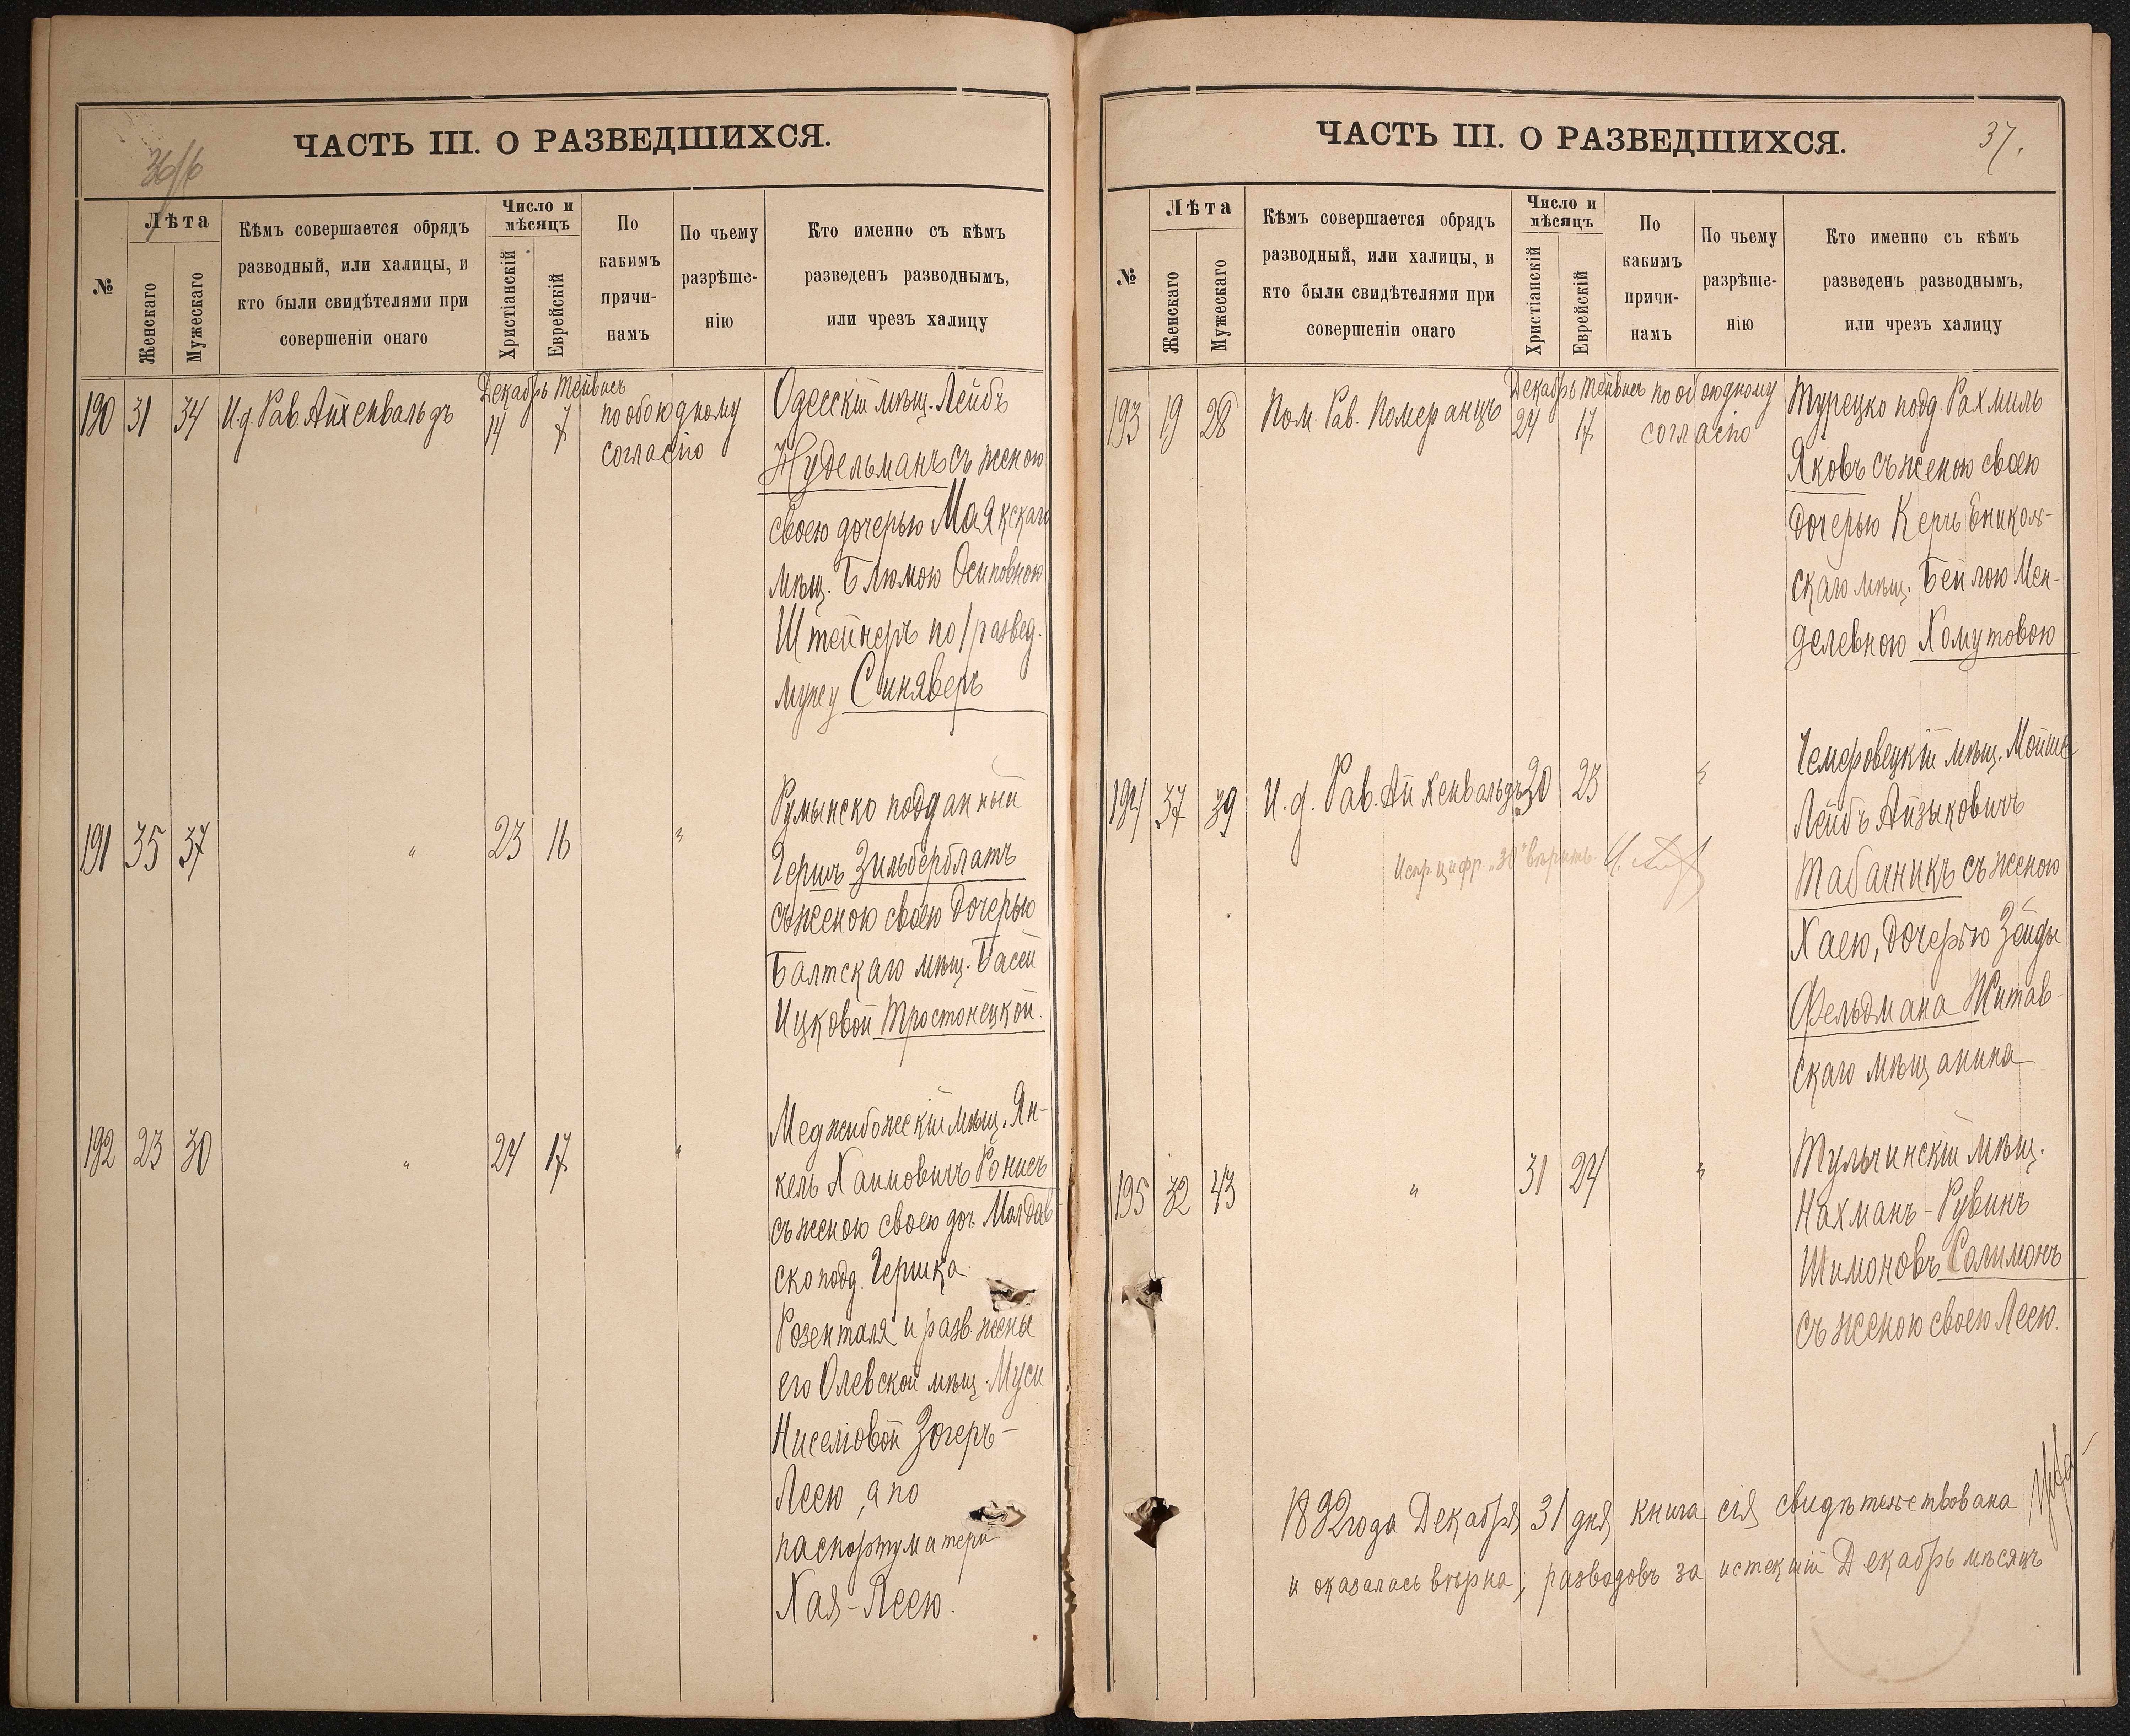 ЧАСТЬ III. О РАЗВЕДШИХСЯ.
№
Лѣта
Женскаго
Мужескаго
Кѣмъ совершается обрядъ
разводный, или халицы, и
кто были свидѣтелями при
совершеніи онаго
Число и
мѣсяцъ
Христіанскій
Еврейскій
По
какимъ
причи-
намъ
По чьему
разрѣше-
нію
Кто именно съ кѣмъ
разведенъ разводнымъ,
или чрезъ халицу
Декабрь Тейвисъ
190 31 34 И.д. Рав. Айхенвальдъ 14 7 по обоюдному
согласію
Одесскій мѣщ. Лейбъ
Нудельманъ съ женою
своею дочерью Маякскаго
мѣщ. Блюмою Осиповною
Штейнеръ по развед.
мужу Синяверъ
191 35 37 " 23 16 "
Румынско подданный
Гершъ Зильберблатъ
съ женою своею дочерью
Балтскаго мѣщ. Басей
Ицковой Тростонецкой.
192 23 30 " 24 17 "
Меджибожескій мѣщ. Ян-
кель Хаимовичъ Ронисъ
съ женою своею доч. Молдав-
ско подд. Гершка
Розенталя и разв. жены
его Олевской мѣщ. Муси
Ниселіовой Зогеръ-
Леею, а по
паспорту матери
Хая-Леею.
ЧАСТЬ III. О РАЗВЕДШИХСЯ.
37.
№
Лѣта
Женскаго
Мужескаго
Кѣмъ совершается обрядъ
разводный, или халицы, и
кто были свидѣтелями при
совершеніи онаго
Число и
мѣсяцъ
Христіанскій
Еврейскій
По
какимъ
причи-
намъ
По чьему
разрѣше-
нію
Кто именно съ кѣмъ
разведенъ разводнымъ,
или чрезъ халицу
Декабрь Тейвисъ
193 19 28 Пом. Рав. Померанцъ 24 17 по обоюдному
согласію
Турецко подд. Рахмиль
Яковъ съ женою своею
дочерью Керчь Еникол-
скаго мѣщ. Бейлою Мен-
делевною Хомутовою
194 37 39 И.д. Рав. Айхенвальдъ 30 23 "
Испр. цифр. „30" вѣрить.
Чемеровецкій мѣщ. Мойше
Лейбъ Айзыковичъ
Табачникъ съ женою
Хаею, дочерью Зейды
Фельдмана Житав-
скаго мѣщанина
195 32 43 " 31 24 "
Тульчинскій мѣщ.
Нахманъ-Рувинъ
Шимоновъ Солимонъ
съ женою своею Леею.
1892 года Декабря 31 дня книга сія свидѣтельствована
и оказалась вѣрна; разводовъ за истекшій Декабрь мѣсяцъ